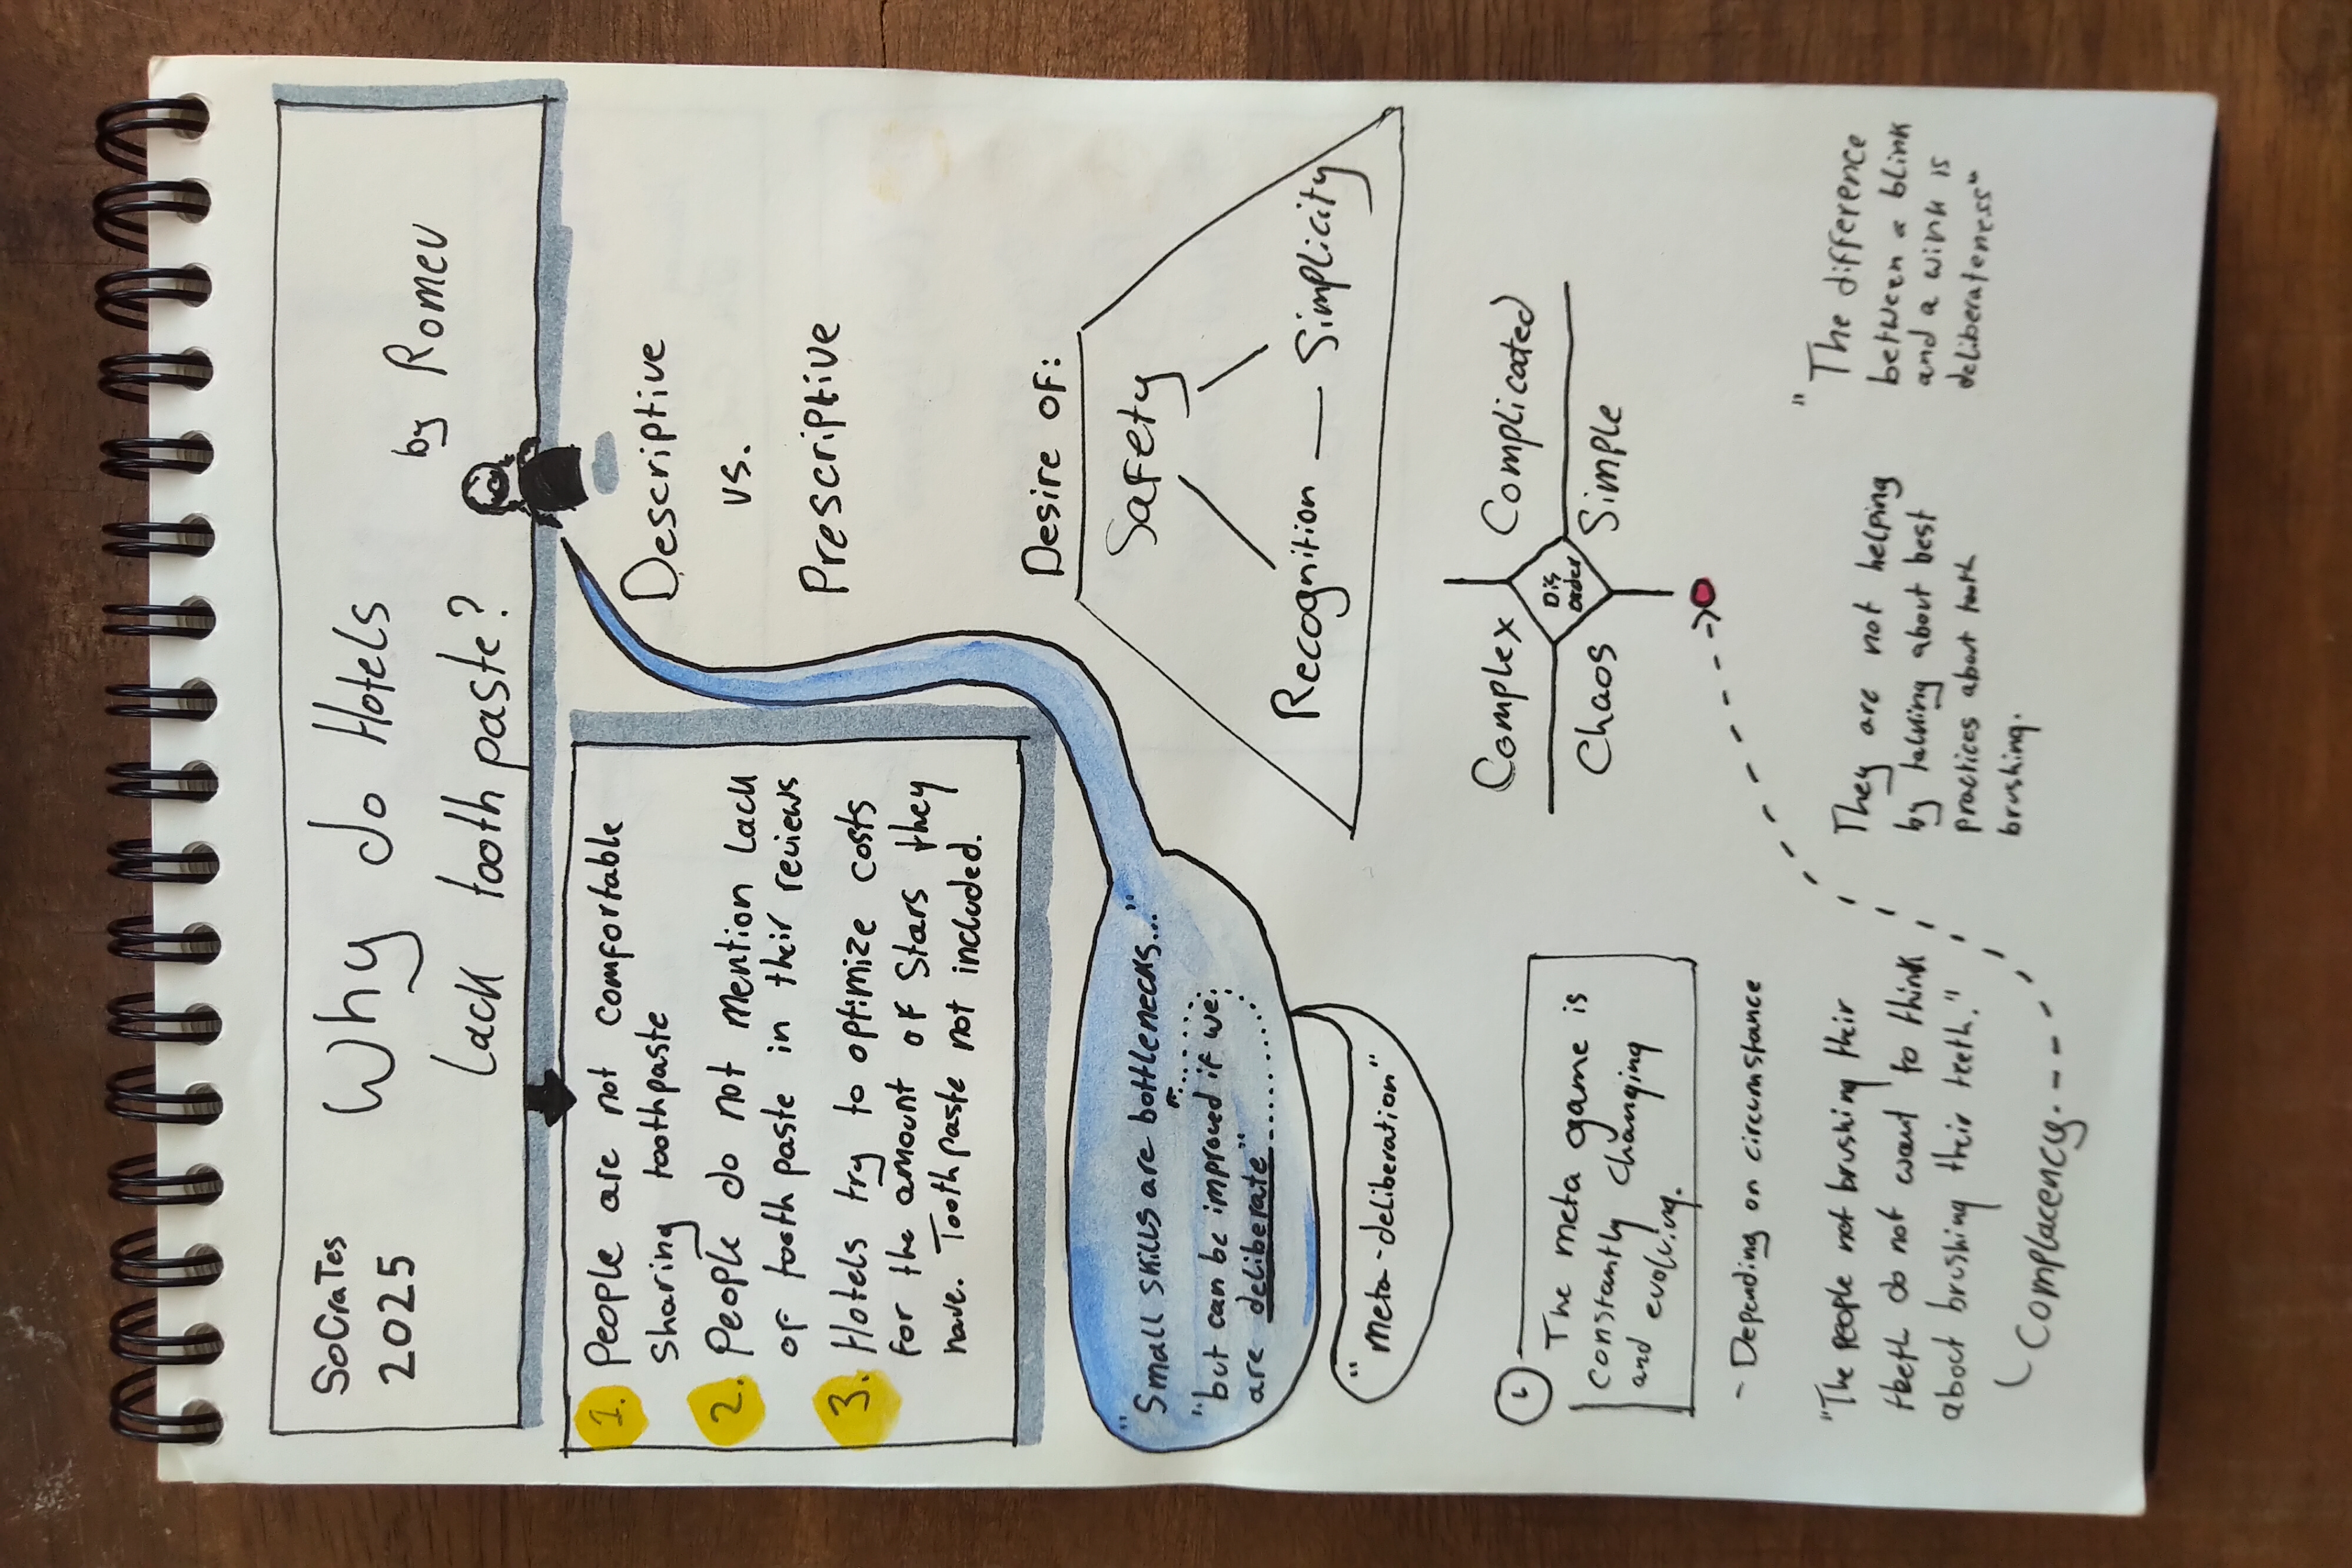 SoCraTes
2025
Why do Hotels
Lack tooth paste?
by Romeu
1. People are not comfortable
sharing toothpaste
2. People do not mention Lack
of tooth paste in their reviews
3. Hotels try to optimize costs
for the amount of Stars they
have. Tooth paste not included.
Descriptive
vs.
Prescriptive
"Small skills are bottlenecks..."
"but can be improved if we
are deliberate"
"meta-deliberation"
Desire of:
Safety
Recognition — Simplicity
The meta game is
constantly changing
and evolving.
- Depending on circumstance
Complex
Complicated
Dis
order
Chaos
Simple
"The people not brushing their
theeth do not want to think
about brushing their teeth."
Complacency.
They are not helping
by talking about best
practices about tooth
brushing.
"The difference
between a blink
and a wink is
deliberateness"